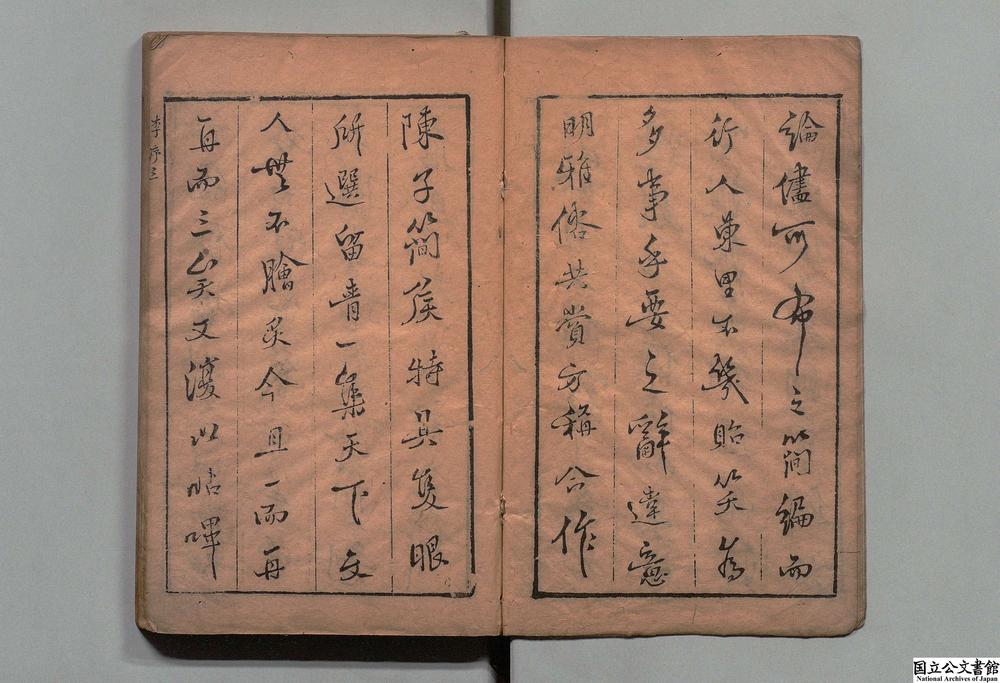 論儘可布之簡編而
行人東里不幾貽笑為
多事乎要之辭達意
明雅俗共賞方稱合作
陳子簡侯特具隻眼
所選留青一集天下文
人無不膾炙今且一而再
再而三矣又復以呫嗶
李序三
国立公文書館
National Archives of Japan